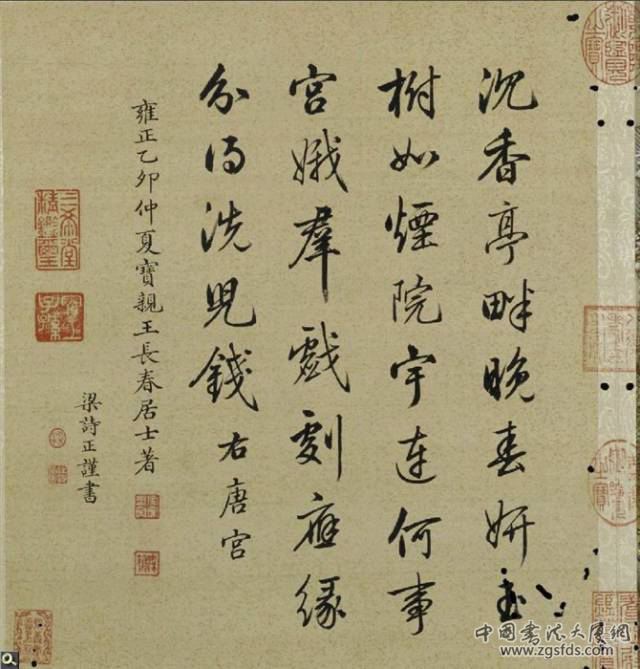 沉香亭畔晚春妍玉
樹如煙院宇連何事
宮娥羣戲劇應緣
分得洗兒錢右唐宮
雍正乙卯仲夏寶親王長春居士著
梁詩正謹書
三希堂精鑑璽
宜子孫
中國書法大廈網
www.zgsfds.com